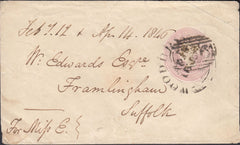 Feb 7. 12 & Apr 14. 1846
Wm. Edwards Esqre
Framlingham
Suffolk
For Miss E.
WOODBR